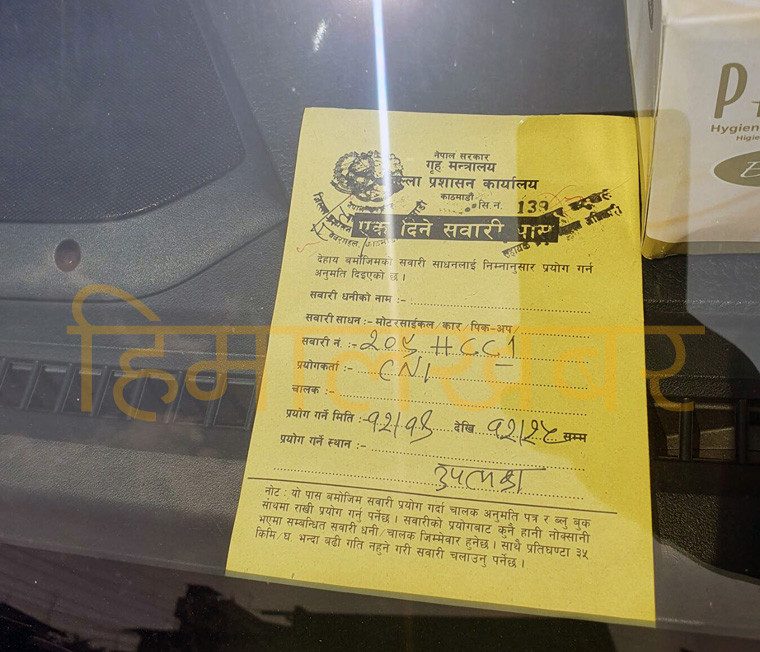 नेपाल सरकार
गृह मन्त्रालय
जिल्ला प्रशासन कार्यालय
काठमाडौं
सि.नं. 139
एक दिने सवारी पास
देहाय बमोजिमको सवारी साधनलाई निम्नानुसार प्रयोग गर्न
अनुमति दिइएको छ ।
सवारी धनीको नाम :-
सवारी साधन :- मोटरसाईकल/कार/पिक-अप
सवारी नं :- २०५
प्रयोगकर्ता :- CNI
चालक :-
प्रयोग गर्ने मिति :- १२/१३ देखि १२/२५ सम्म
प्रयोग गर्ने स्थान :-
नोट : यो पास बमोजिम सवारी प्रयोग गर्दा चालक अनुमति पत्र र ब्लु बुक
साथमा राखी प्रयोग गर्नु पर्नेछ । सवारीको प्रयोगबाट कुनै हानी नोक्सानी
भएमा सम्बन्धित सवारी धनी/चालक जिम्मेवार हुनेछ । साथै प्रतिघण्टा ३५
किमि/घ. भन्दा बढी गति नहुने गरी सवारी चलाउनु पर्नेछ ।
हिमालखबर
Hygien
Higie